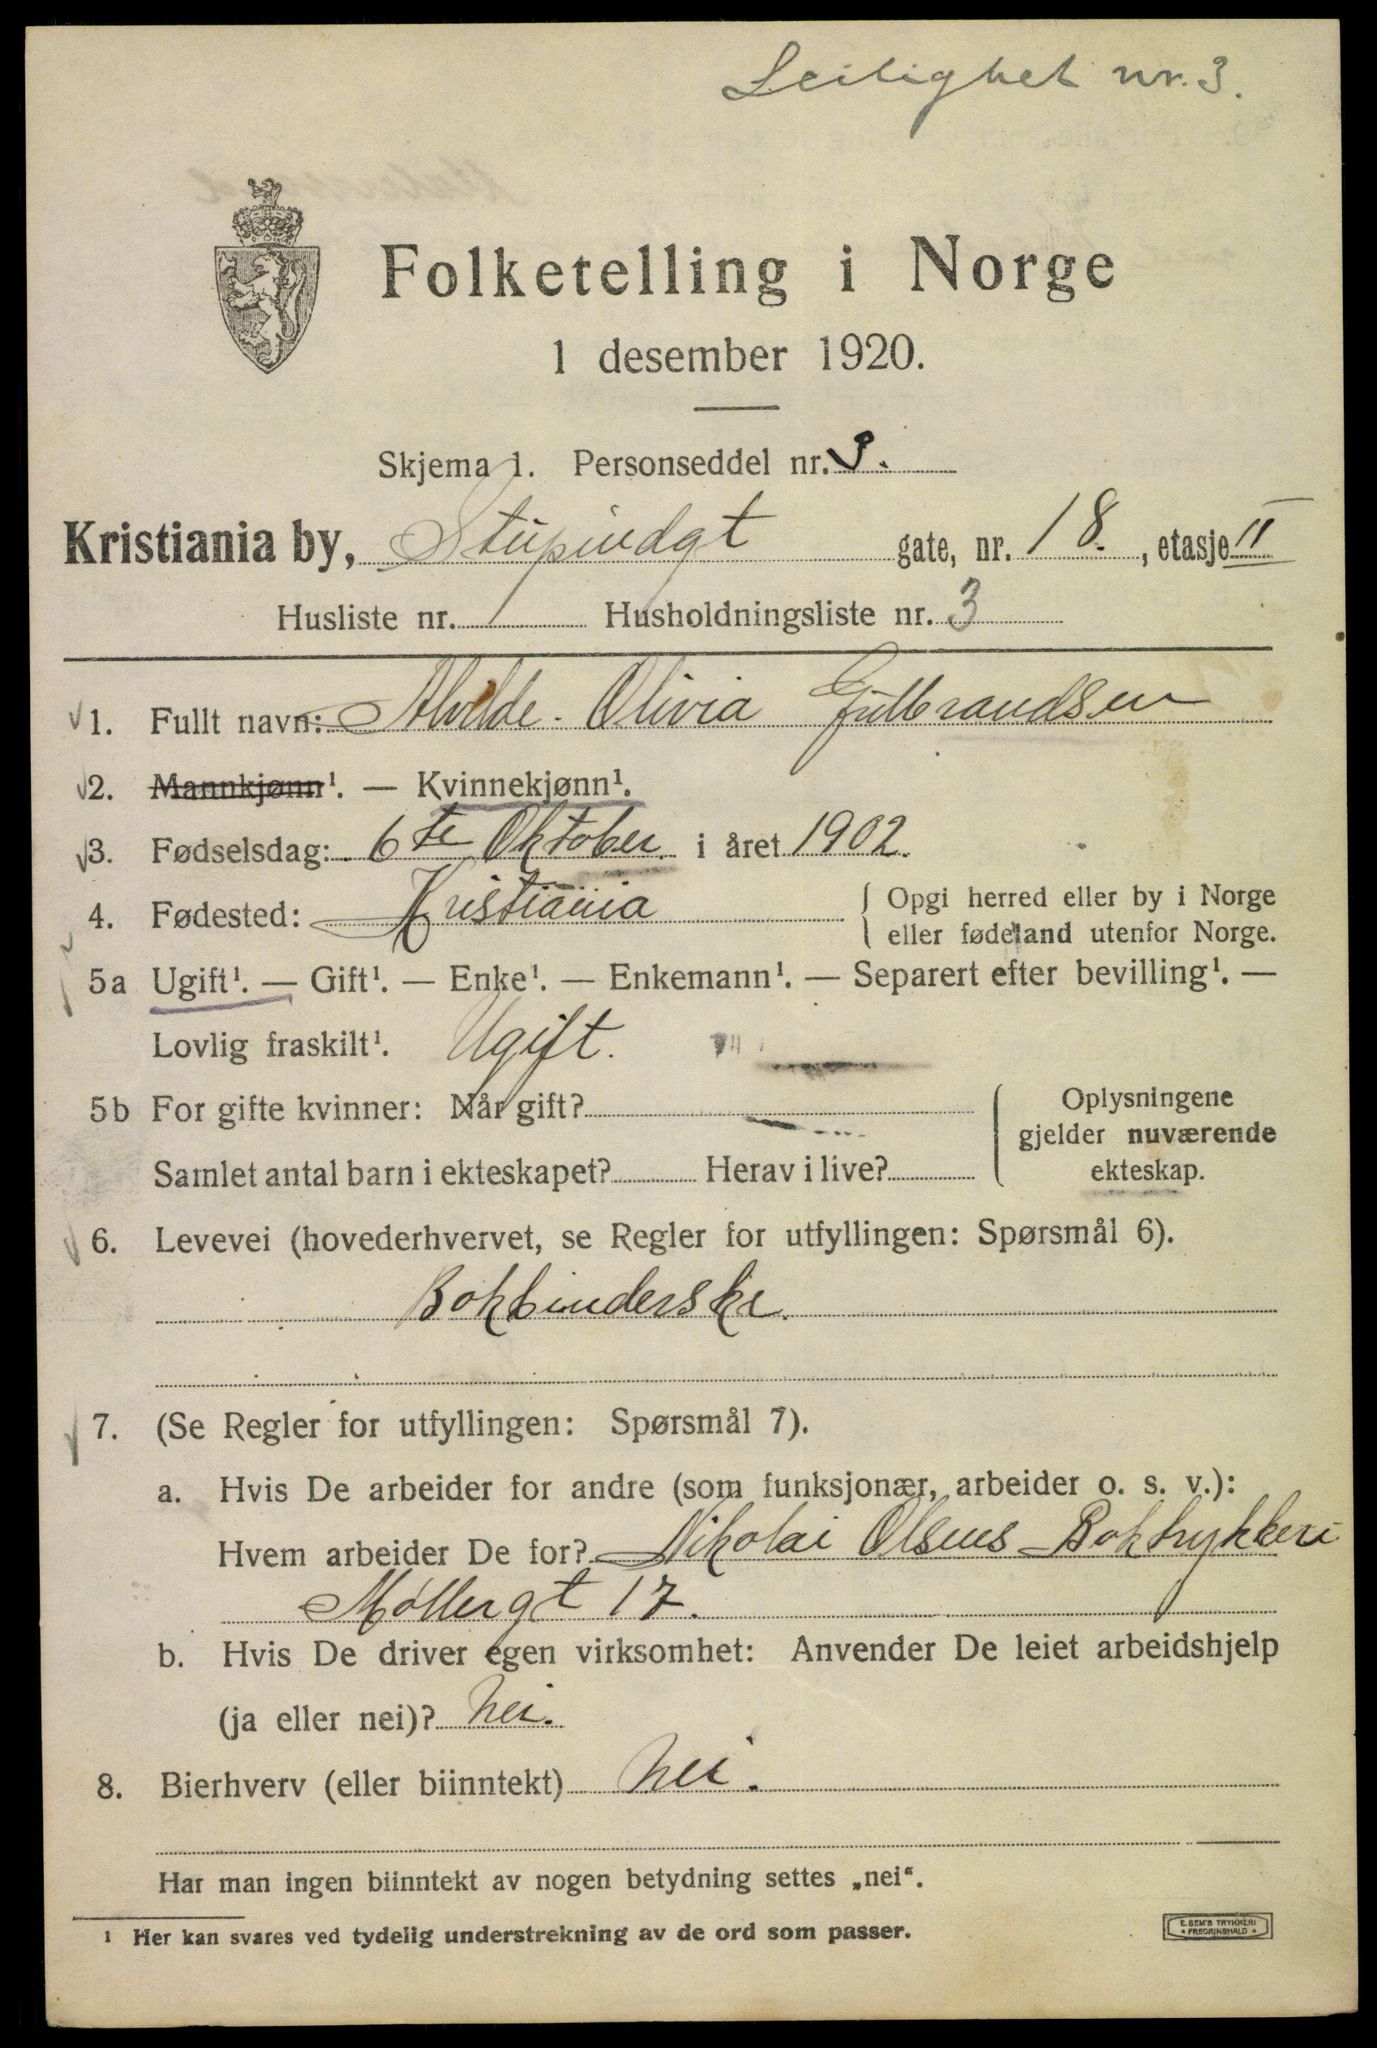 Leilighet nr. 3.
Folketelling i Norge
1 desember 1920.
Skjema 1. Personseddel nr. 3.
Kristiania by, Stupindgt gate, nr. 18., etasje II
Husliste nr. 1 Husholdningsliste nr. 3
1. Fullt navn: Alvilde Olivia Gulbrandsen
2. Mannkjønn¹. — Kvinnekjønn¹.
3. Fødselsdag: 6te Oktober i året 1902.
4. Fødested: Kristiania { Opgi herred eller by i Norge
eller fødeland utenfor Norge.
5a Ugift¹. — Gift¹. — Enke¹. — Enkemann¹. — Separert efter bevilling¹. —
Lovlig fraskilt¹. Ugift.
5b For gifte kvinner: Når gift?
Samlet antal barn i ekteskapet? Herav i live?
Oplysningene
gjelder nuværende
ekteskap.
6. Levevei (hovederhvervet, se Regler for utfyllingen: Spørsmål 6).
Bokbinderske.
7. (Se Regler for utfyllingen: Spørsmål 7).
a. Hvis De arbeider for andre (som funksjonær, arbeider o. s. v.):
Hvem arbeider De for? Nikolai Olsens Boktrykkeri
Møllergt 17.
b. Hvis De driver egen virksomhet: Anvender De leiet arbeidshjelp
(ja eller nei)? Nei.
8. Bierhverv (eller biinntekt) Nei.
Har man ingen biinntekt av nogen betydning settes „nei“.
¹ Her kan svares ved tydelig understrekning av de ord som passer.
E. SEM'S TRYKKERI
* FREDRIKSHALD *